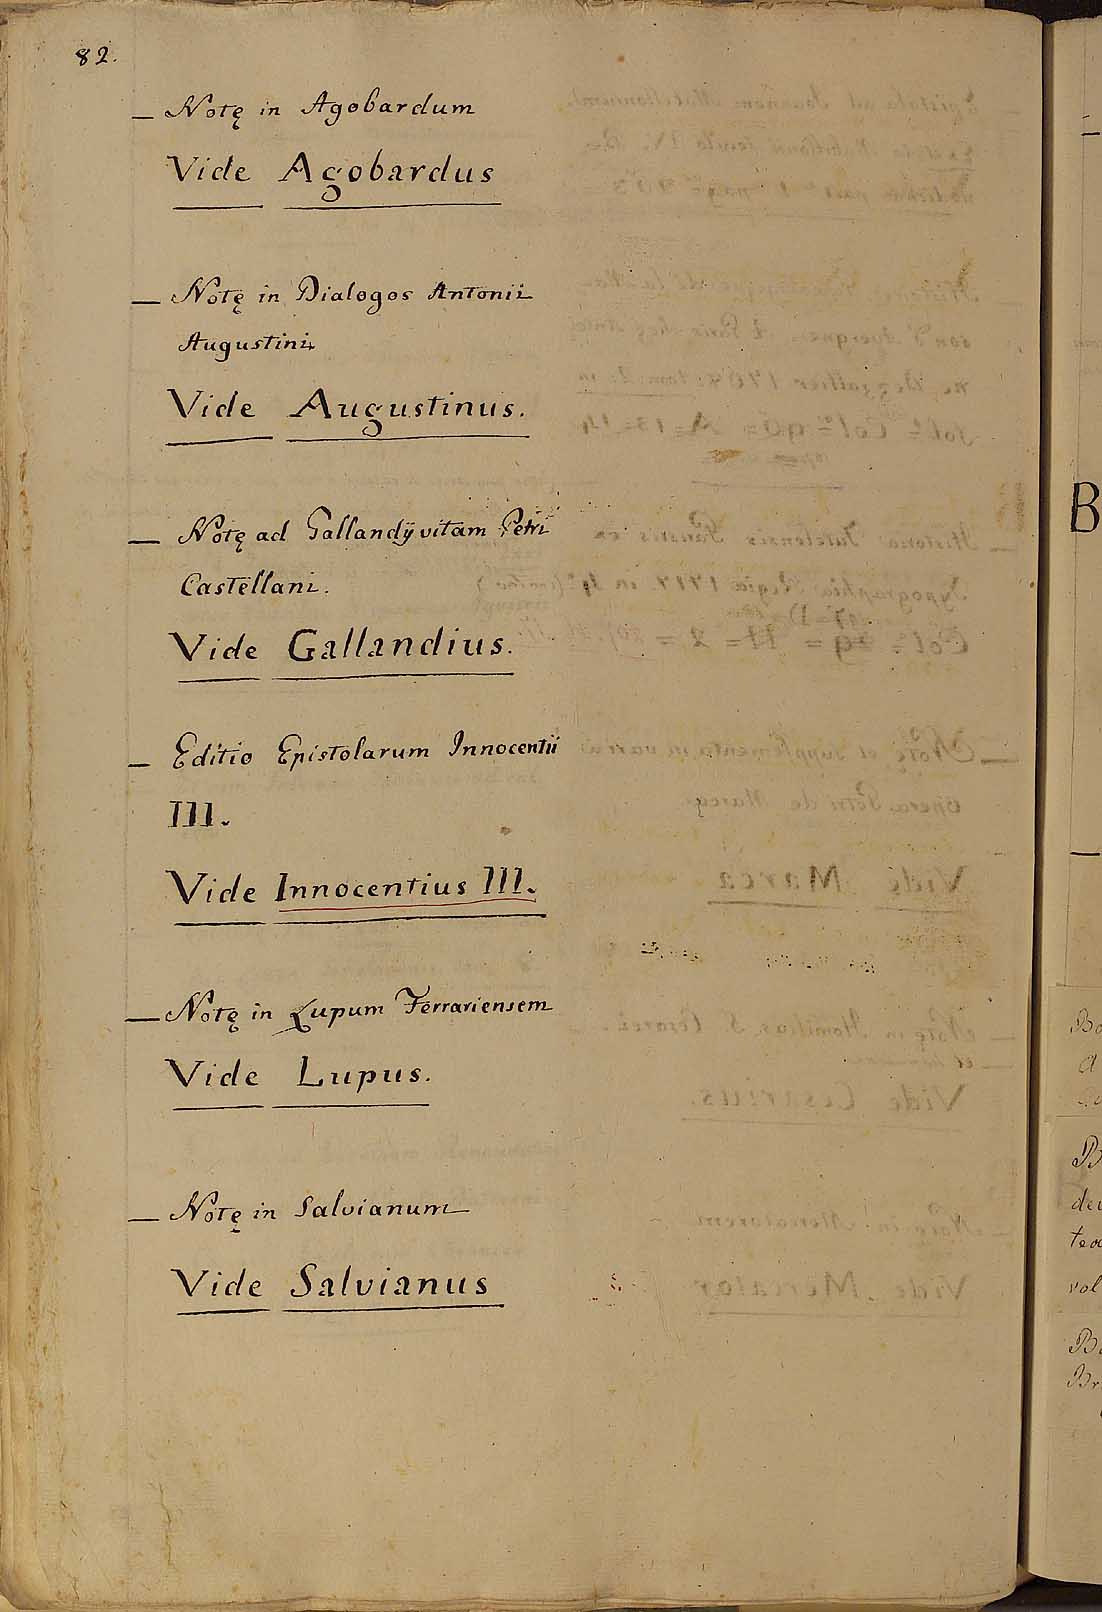 82.
— Notę in Agobardum
Vide Agobardus
— Notę in Dialogos Antonii
Augustini
Vide Augustinus.
— Notę ad Gallandij vitam Petri
Castellani.
Vide Gallandius.
— Editio Epistolarum Innocentii
III.
Vide Innocentius III.
— Notę in Lupum Ferrariensem
Vide Lupus.
— Notę in Salvianum
Vide Salvianus
B